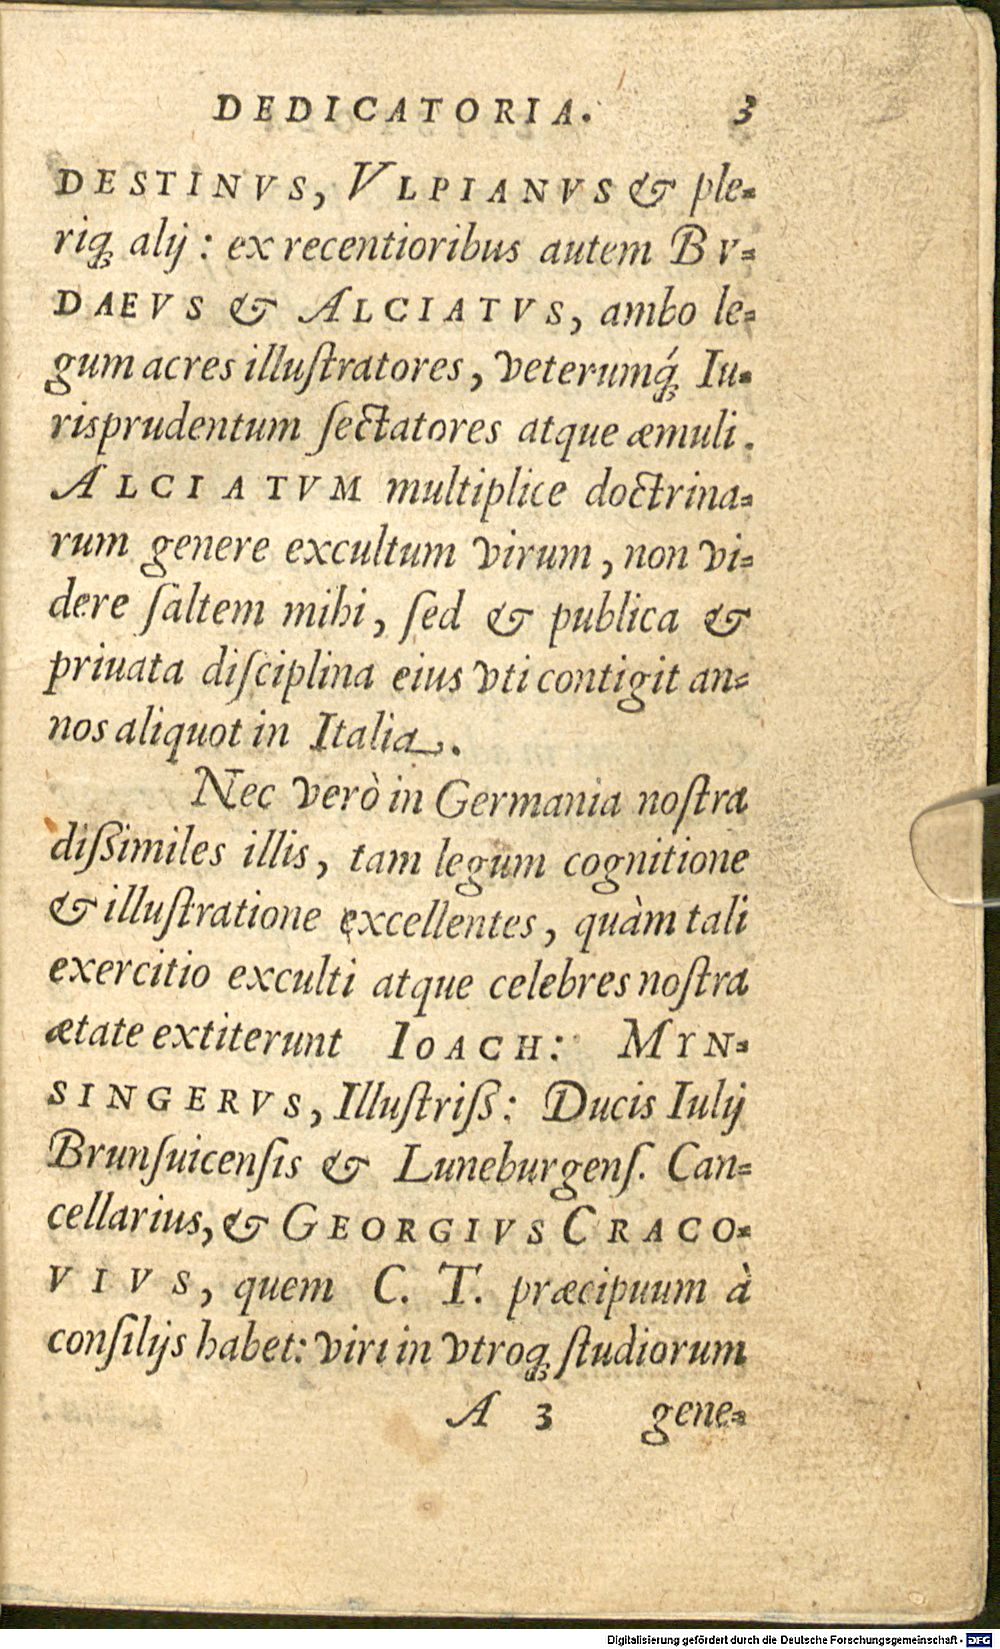 DEDICATORIA. 3
DESTINVS, VLPIANVS & ple-
riq́; alij : ex recentioribus autem BV-
DAEVS & ALCIATVS, ambo le-
gum acres illuſtratores, veterumq́; Iu-
risprudentum ſectatores atque æmuli.
ALCIATVM multiplice doctrina-
rum genere excultum virum, non vi-
dere ſaltem mihi, ſed & publica &
priuata diſciplina eius vti contigit an-
nos aliquot in Italia.
Nec verò in Germania noſtra
dißimiles illis, tam legum cognitione
& illuſtratione excellentes, quàm tali
exercitio exculti atque celebres noſtra
ætate extiterunt IOACH: MYN-
SINGERVS, Illuſtriß: Ducis Iulij
Brunſuicenſis & Luneburgenſ. Can-
cellarius, & GEORGIVS CRACO-
VIVS, quem C. T. præcipuum à
conſilijs habet: viri in vtroq; ſtudiorum
A 3 gene-
Digitalisierung gefördert durch die Deutsche Forschungsgemeinschaft - DFG